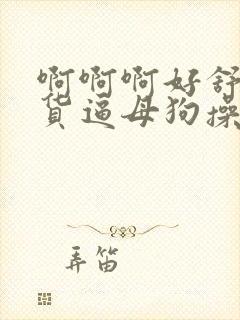 啊啊啊好舒
货逼母狗操
弄笛